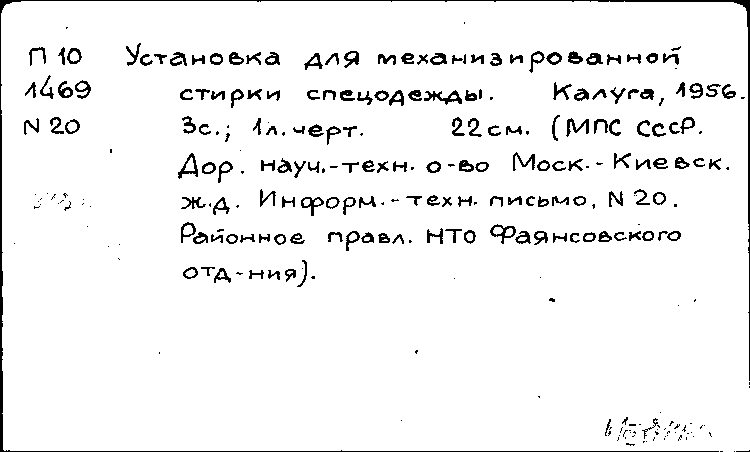 П 10 Установка для механизированной
1469 стирки спецодежды. Калуга, 1956.
N 20 3с.; 1л.черт. 22см. (МПС СССР.
Дор. науч.-техн. о-во Моск.-Киевск.
ж.д. Информ.-техн. письмо, N 20.
Районное правл. НТО Фаянсовского
отд-ния).